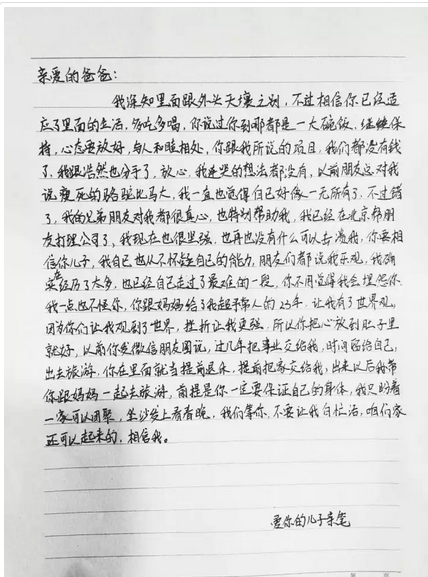 亲爱的爸爸：
我深知里面跟外头天壤之别，不过相信你已经适
应了里面的生活，多吃多喝，你说过你到哪都是一大碗饭，继续保
持，心态要放好，与人和睦相处，你跟我所说的项目，我们都没有钱
了，我跟浩然也分手了，放心，我连哭的想法都没有，以前朋友总对我
说瘦死的骆驼比马大，我一直也觉得自己好像一无所有了，不过错
了，我的兄弟朋友对我都很真心，也特别帮助我，我已经在北京帮朋
友打理公司了，我现在也很坚强，也再也没有什么可以击溃我，你要相
信你儿子，我自己也从不怀疑自己的能力，朋友们都说我乐观，我确
实经历了太多，也已经自己走过了最难的一段，你不用觉得我会埋怨你
我一点也不怪你，你跟妈妈给了我超乎常人的23年，让我有了世界观，
因为你们让我观到了世界，挫折让我更强，所以你把心放到肚子里
就好，以前你发微信朋友圈说，过几年把事业交给我，时间留给自己，
出去旅游，你在里面就当提前退休，提前把家交给我，出来以后我带
你跟妈妈一起去旅游，前提是你一定要保证自己的身体，我只盼着
一家可以团聚，坐沙发上看看晚，我们等你，不要让我白忙活，咱们家
还可以起来的，相信我。
爱你的儿子亲笔